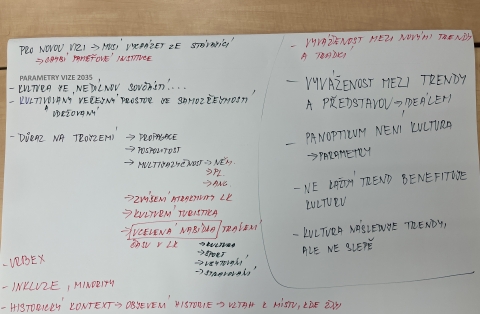 PRO NOVOU VIZI → MUSÍ VYCHÁZET ZE STÁVAJÍCÍ
→ CHYBÍ PAMĚŤOVÉ INSTITUCE
PARAMETRY VIZE 2035
- KULTURA JE NEDÍLNOU SOUČÁSTÍ...
- KULTIVOVANÝ VEŘEJNÝ PROSTOR JE SAMOZŘEJMOSTÍ
UDRŽOVANÝ
- DŮRAZ NA TROJZEMÍ → PROPAGACE
→ POSPOLITOST
→ MULTIJAZYČNOST → NĚM.
→ PL
→ ANG
→ ZVÝŠENÍ ATRAKTIVITY LK
→ KULTURNÍ TURISTIKA
→ UCELENÁ NABÍDKA TRÁVENÍ
ČASU V LK → KULTURA
→ SPORT
→ STRAVOVÁNÍ
- URBEX
- INKLUZE, MINORITY
- HISTORICKÝ KONTEXT → OBJEVENÍ HISTORIE → VZTAH K MÍSTU, KDE ŽIJI
- VYVÁŽENOST MEZI NOVÝMI TRENDY
A TRADICÍ
- VYVÁŽENOST MEZI TRENDY
A PŘEDSTAVOU → IDEÁLEM
- PANOPTIKUM NENÍ KULTURA
→ PARAMETRY
- NE KAŽDÝ TREND BENEFITUJE
KULTURU
- KULTURA NÁSLEDUJE TRENDY,
ALE NE SLEPĚ